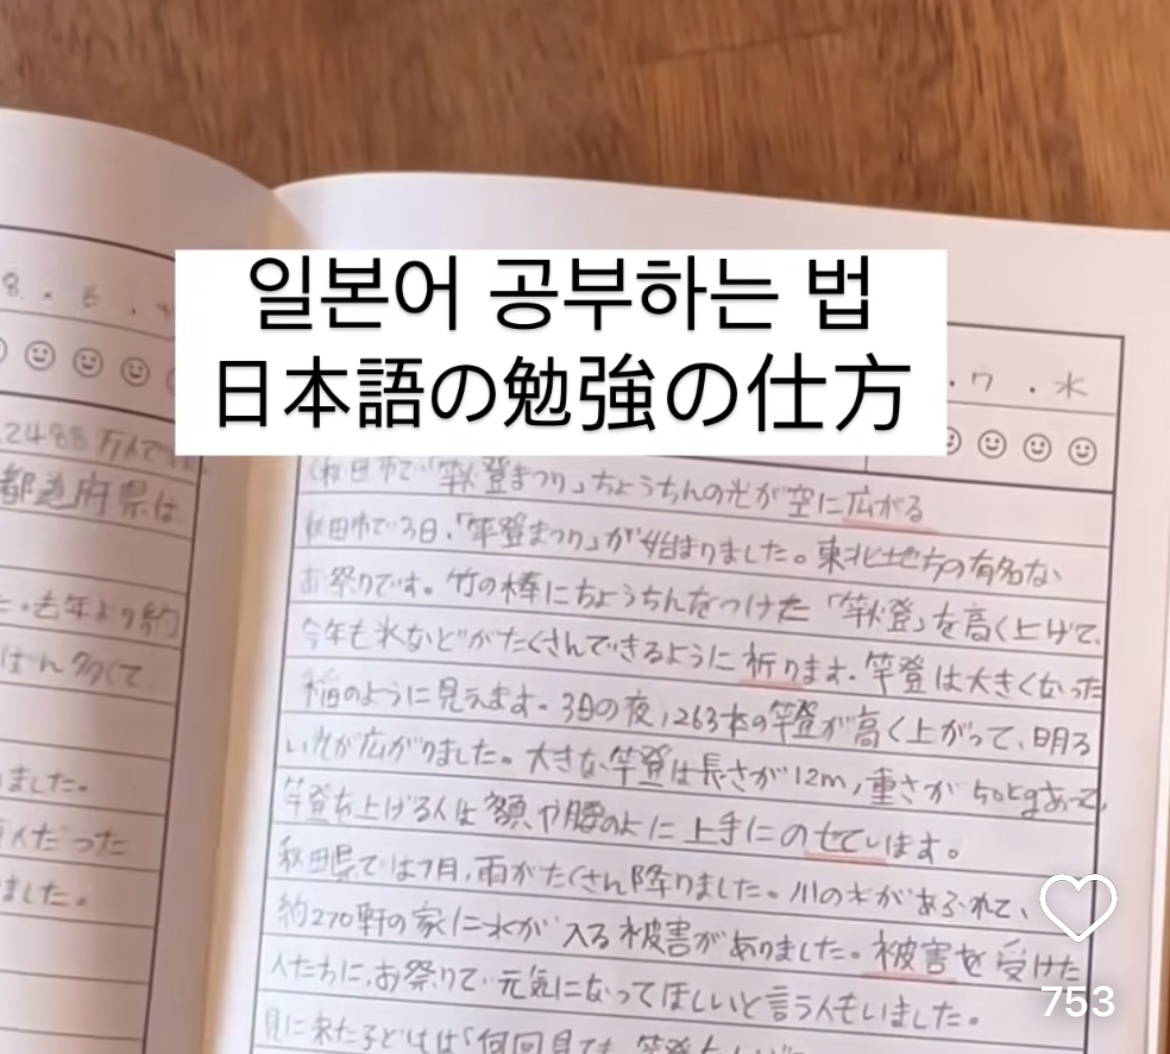 일본어 공부하는 법
日本語の勉強の仕方
8 . 6 .
. 7 . 水
2488万人で
都道府県は
去年より約
ばん多くて
ました。
人だった
ました。
秋田市で「竿燈まつり」ちょうちんの光が空に広がる
秋田市で3日、「竿燈まつり」が始まりました。東北地方の有名な
お祭りです。竹の棒にちょうちんをつけた「竿燈」を高く上げて、
今年も米などがたくさんできるように祈ります。竿燈は大きくなった
稲のように見えます。3日の夜、263本の竿燈が高く上がって、明る
い光が広がりました。大きな竿燈は長さが12m、重さが50kgあって、
竿燈を上げる人は額や腰の上に上手にのせています。
秋田県では7月、雨がたくさん降りました。川の水があふれて、
約270軒の家に水が入る被害がありました。被害を受けた
人たちに、お祭りで元気になってほしいと言う人もいました。
見に来た子どもは「何回見ても、竿燈
753